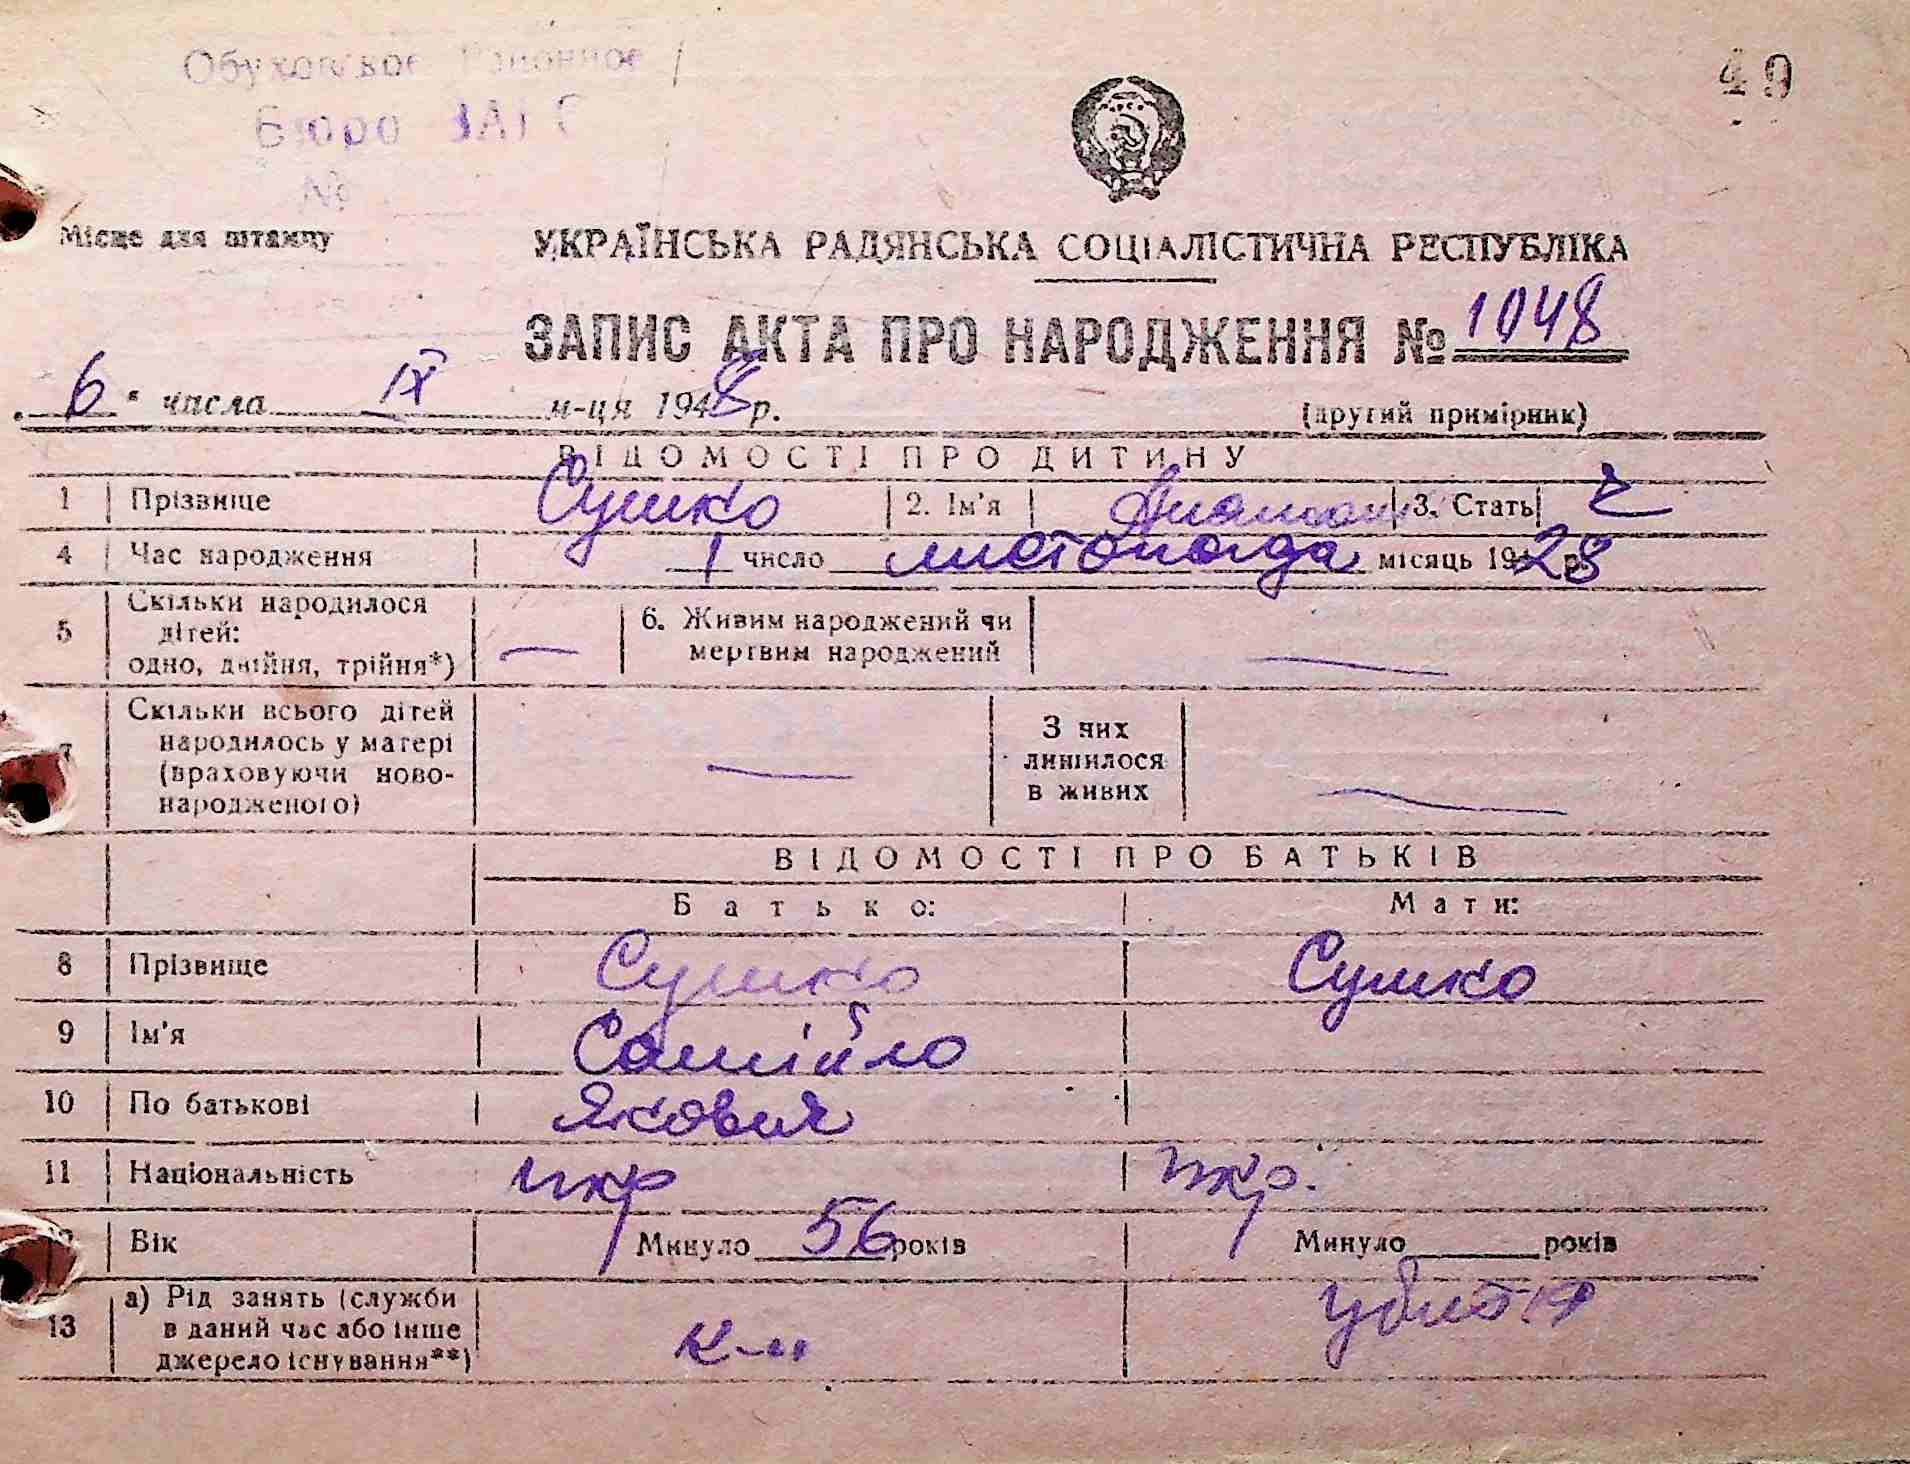 49
Обуховское Районное
Бюро ЗАГС
№
Місце для штампу
УКРАЇНСЬКА РАДЯНСЬКА СОЦІАЛІСТИЧНА РЕСПУБЛІКА
ЗАПИС АКТА ПРО НАРОДЖЕННЯ № 1048
„ 6 " числа IX м-ця 1948 р.
(другий примірник)
ВІДОМОСТІ ПРО ДИТИНУ
1 Прізвище Сушко 2. Ім'я 3. Стать ч
4 Час народження 1 число листопада місяць 1928 р.
5 Скільки народилося дітей: одно, двійня, трійня*) — 6. Живим народжений чи мертвим народжений —
7 Скільки всього дітей народилось у матері (враховуючи ново-народженого) — З них лишилося в живих —
ВІДОМОСТІ ПРО БАТЬКІВ
Батько: Мати:
8 Прізвище Сушко Сушко
9 Ім'я Самійло
10 По батькові Якович
11 Національність укр укр.
12 Вік Минуло 56 років Минуло років
13 а) Рід занять (служби в даний час або інше джерело існування**) к-к